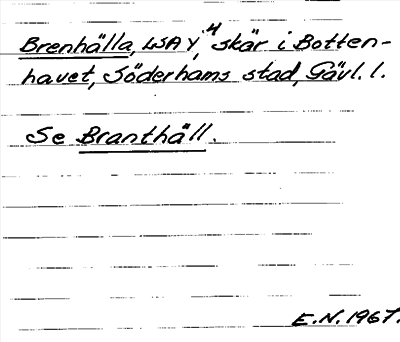 Brenhälla, LSA Y, 4 skär i Botten-
havet, Söderhams stad, Gävl. l.
Se Branthäll.
E.N. 1967.